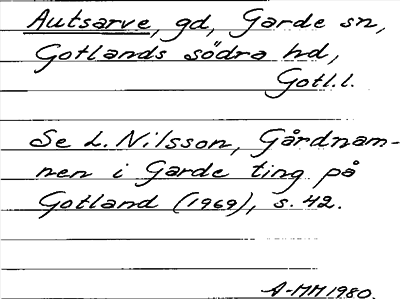 Autsarve, gd, Garde sn,
Gotlands södra hd,
Gotl.l.
Se L. Nilsson, Gårdnam-
nen i Garde ting på
Gotland (1969), s. 42.
A-MM 1980.